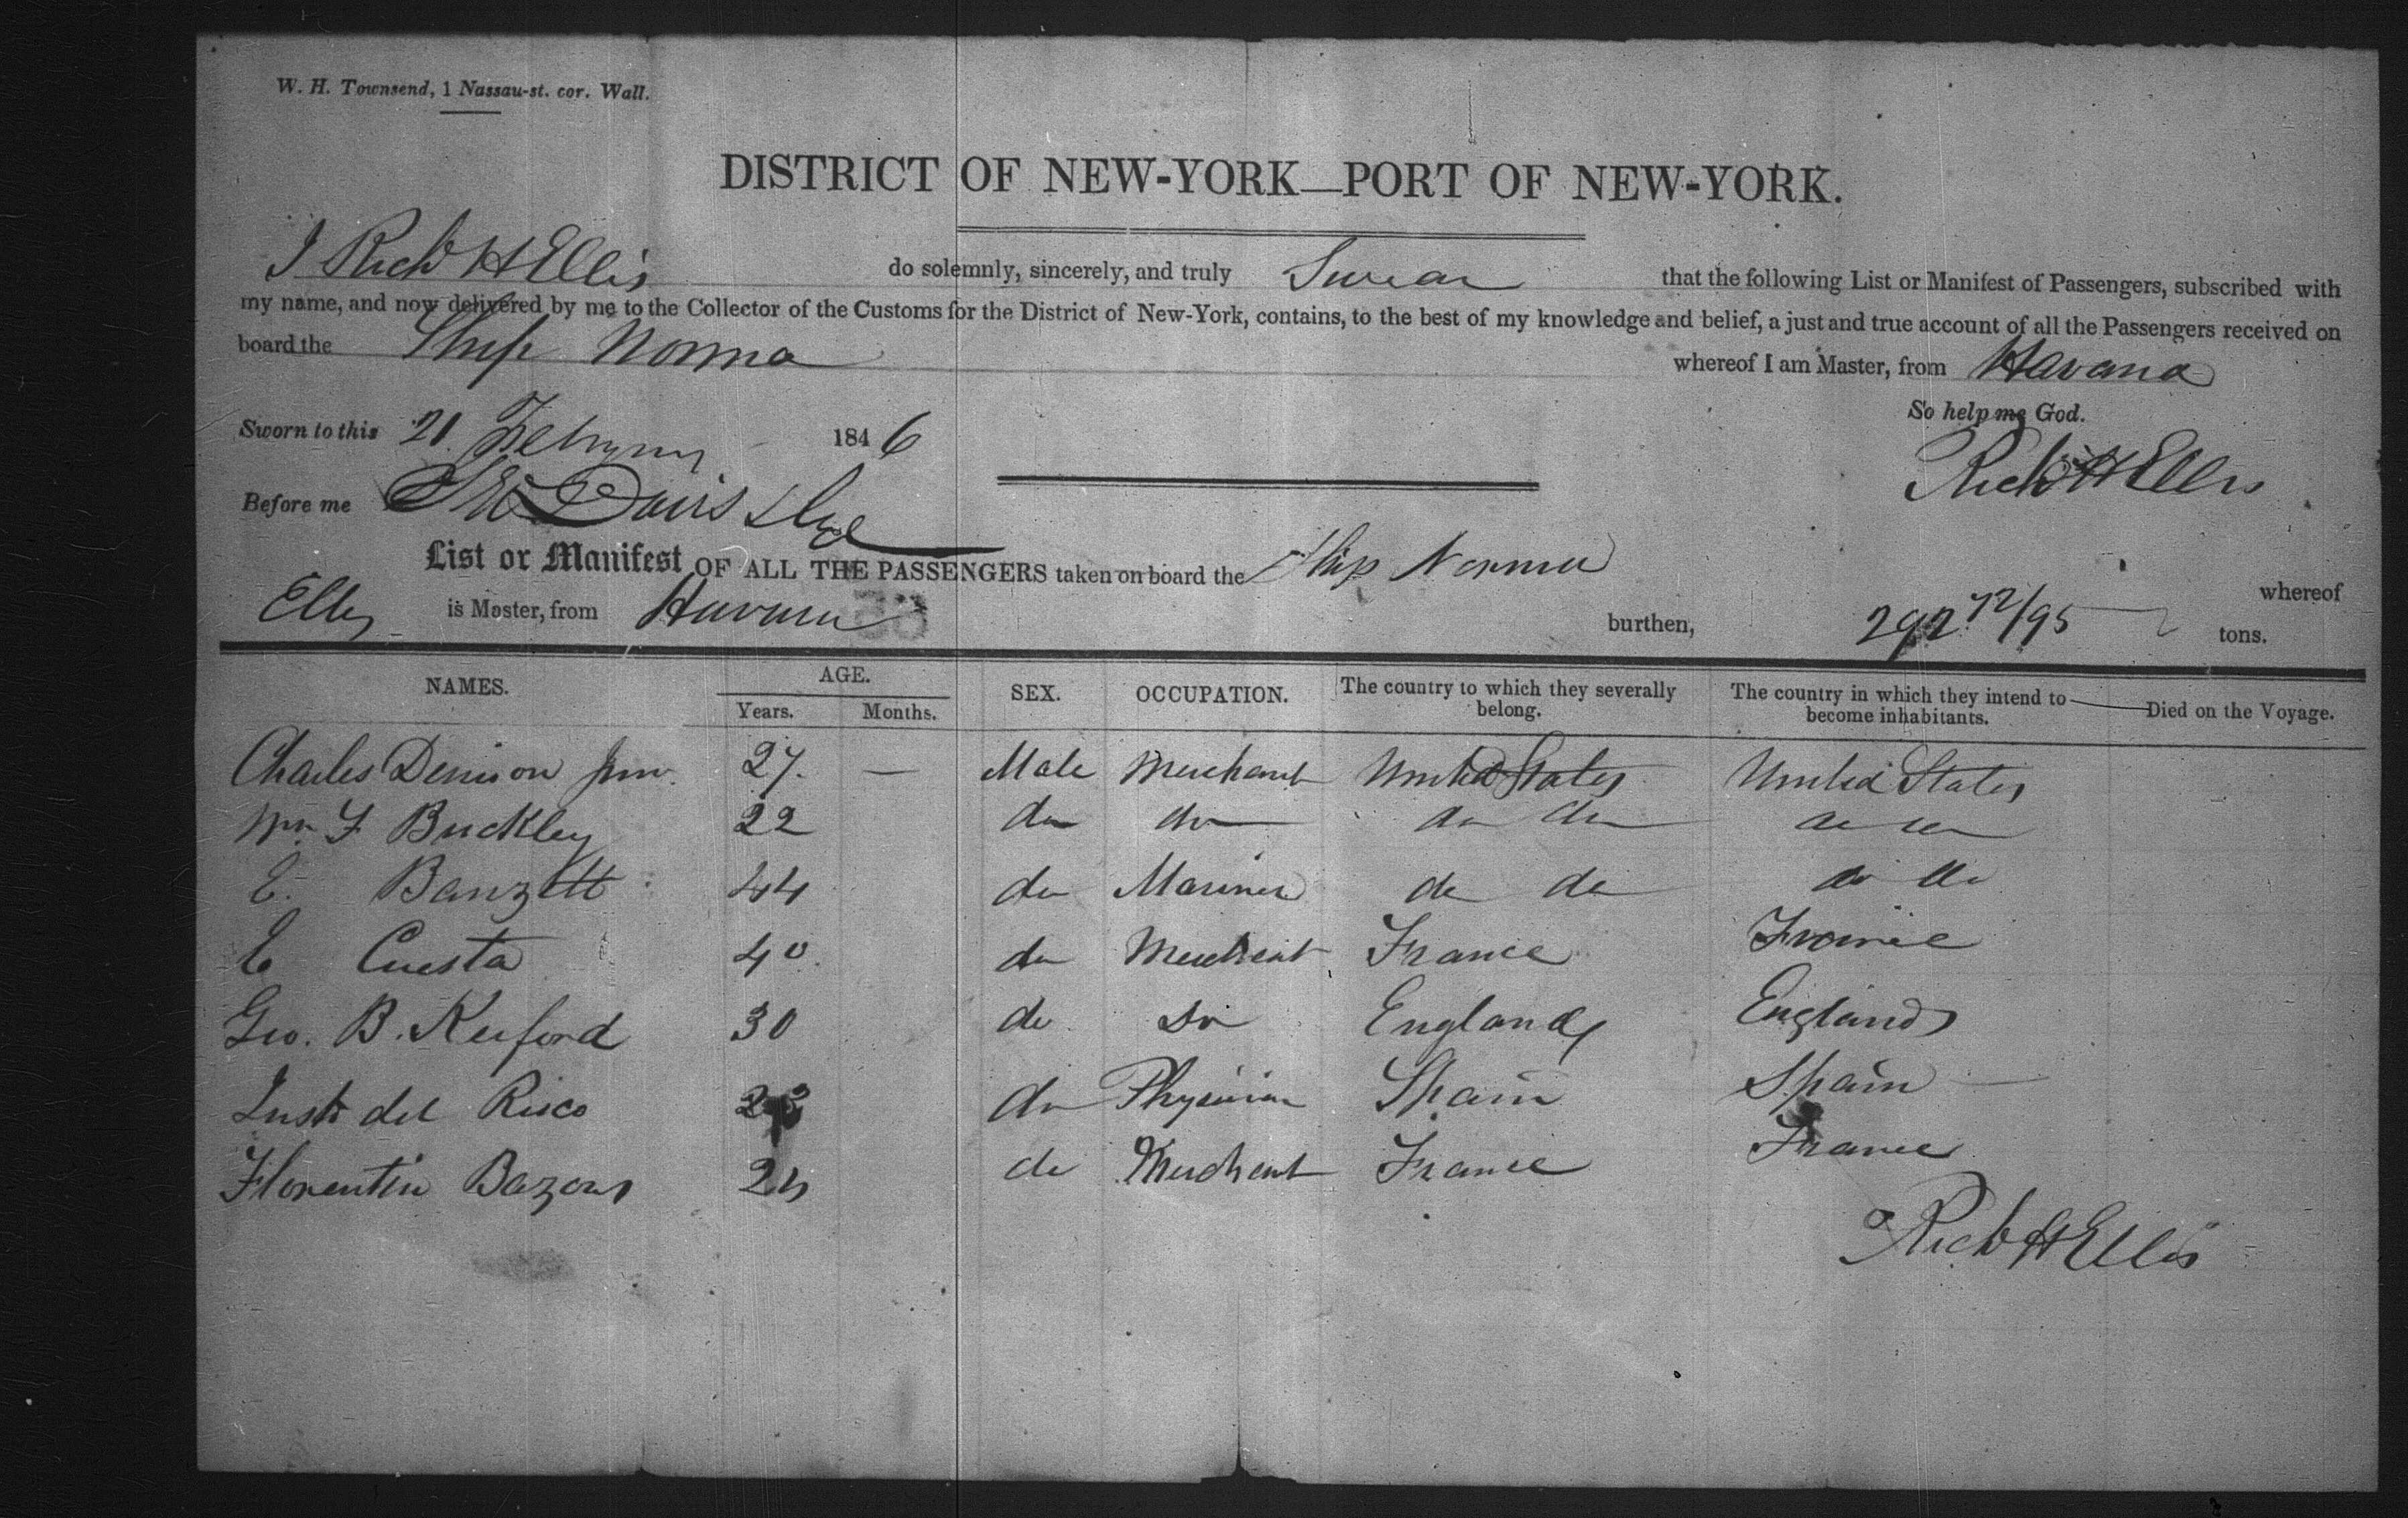 W. H. Townsend, 1 Nassau-st. cor. Wall.
DISTRICT OF NEW-YORK—PORT OF NEW-YORK.
I Richd H Ellis do solemnly, sincerely, and truly Swear that the following List or Manifest of Passengers, subscribed with
my name, and now delivered by me to the Collector of the Customs for the District of New-York, contains, to the best of my knowledge and belief, a just and true account of all the Passengers received on
board the Ship Norma whereof I am Master, from Havana
So help me God.
Sworn to this 21 February 1846
Richd H Ellis
Before me Davis
List or Manifest OF ALL THE PASSENGERS taken on board the Ship Norma whereof
Ellis is Master, from Havana burthen, 292 72/95 tons.
NAMES. AGE. SEX. OCCUPATION. The country to which they severally belong. The country in which they intend to become inhabitants. Died on the Voyage.
Years. Months.
Charles Denison Junr. 27. — Male Merchant United States United States
Wm. F Buckley 22 do do do do do do
E. Banzett 44 do Mariner do do do do
E Cuesta 40. do Merchant France France
Geo. B. Kerford 30 do Do England England
Justo del Risco do Physician Spain Spain
Florentin Bazons 24 do Merchant France France
Richd H Ellis